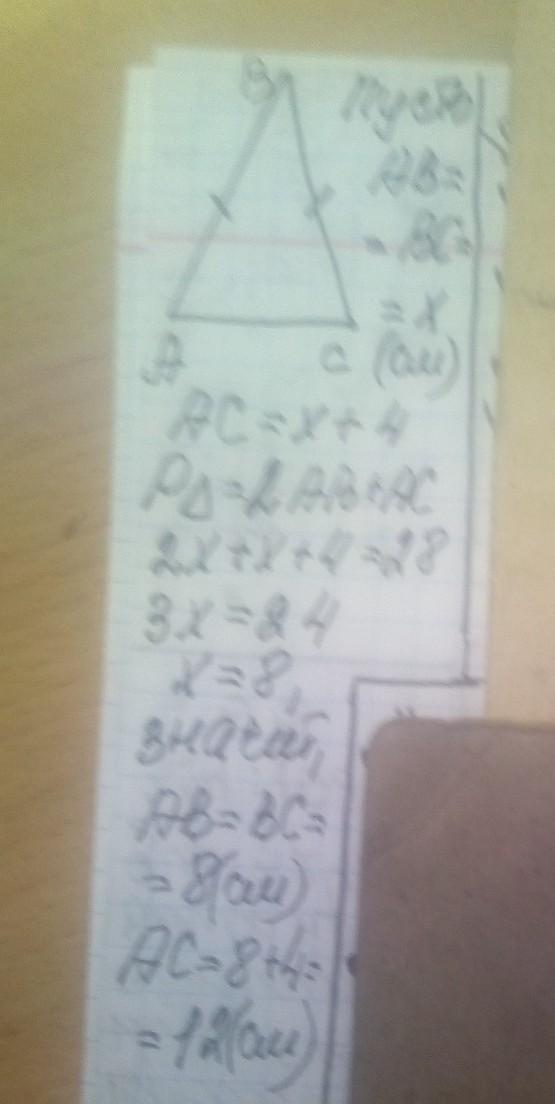 B
Пусть
AB=
= BC=
= x
A
C
(см)
AC = x + 4
PΔ = 2AB+AC
2x + x + 4 = 28
3x = 24
x = 8,
значит,
AB = BC =
= 8(см)
AC = 8+4 =
= 12(см)